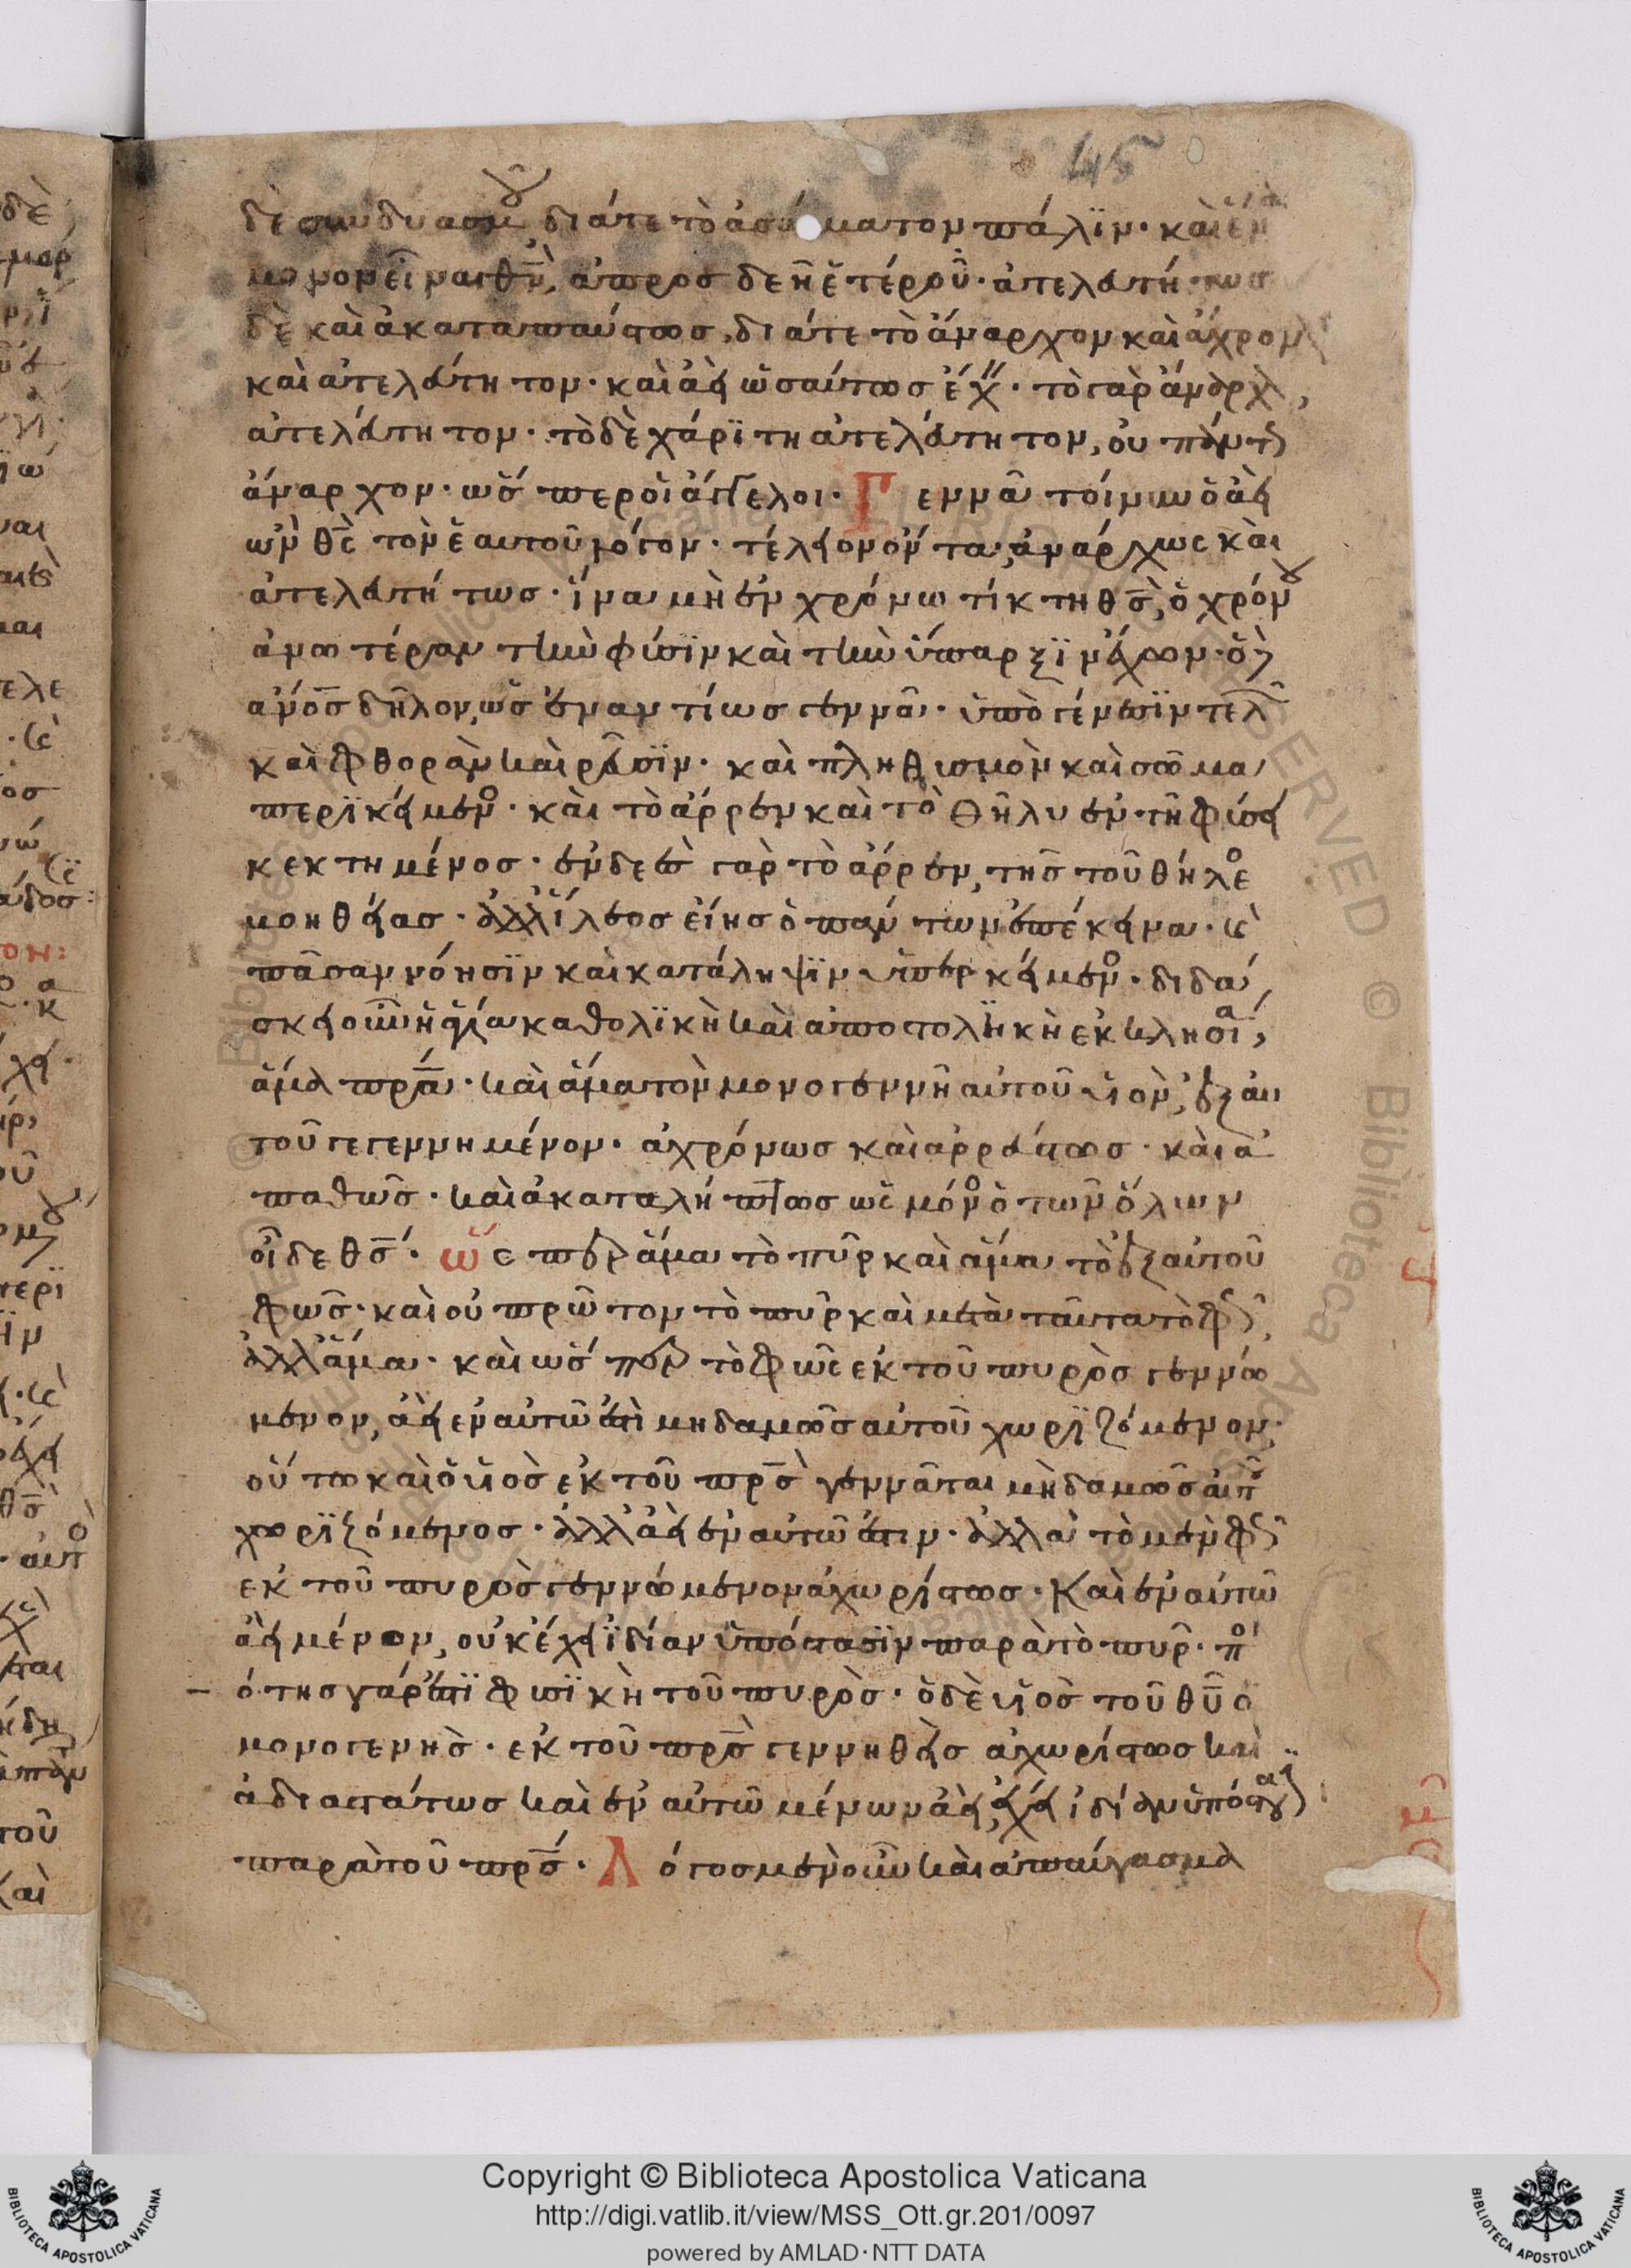 45
δὲ συνδυασμοῦ διάτε τὸ ἀσώματον πάλϊν· καὶ ἕνα
μόνον εἶναι θν̅, ἄπρος δεῆ ἑτέρου· ἀτελευτή τως
δὲ καὶ ἀκαταπαύστως, διάτε τὸ ἄναρχον καὶ ἄχρον
καὶ ἀτελεύτητον· καὶ ἀεὶ ὡσαύτως ἔχειν· τὸ γὰρ ἄναρχον,
ἀτελεύτητον· τὸ δὲ χάρϊτη ἀτελεύτητον, οὐ πάντως
ἄναρχον· ὥσπερ οἱ ἄγγελοι· Γεννᾶ τοίνυν ὁ ἀεὶ
ὢν θς̅ τὸν ἑαυτοῦ λόγον· τέλειον ὄντα, ἀνάρχως καὶ
ἀτελευτήτως· ἵνα μὴ ἐν χρόνω τίκτη θς̅, ὁ χρόνου
ἀνωτέραν τὴν φύσϊν καὶ τὴν ὕπαρξϊν ἔχων· ὁ δὲ
ἀνο̅ς̅ δῆλον, ὡς ἐναντίως γεννᾶ· ὑπὸ γένεσϊν τελῶν
καὶ φθορὰν καὶ ῥεῦσϊν· καὶ πληθυσμὸν καὶ σῶμα
περϊκείμενος· καὶ τὸ ἄρρεν καὶ τὸ θῆλυ ἐν τῆ φύσει
κεκτημένος· ἐνδεὲς γὰρ τὸ ἄρρεν, τῆς τοῦ θήλεος
βοηθείας· ἀλλ' ἵλεως εἴης ὁ πάντων ἐπέκεινα· καὶ
πᾶσαν νόησϊν καὶ κατάληψϊν ὑπερκείμενος· διδά
σκει οὖν ἡ ἁγία καθολϊκὴ καὶ ἀποστολϊκὴ ἐκκλησία,
ἅμα πρ̅α̅· καὶ ἅμα τὸν μονογεννῆ αὐτοῦ υἱὸν, ἐξ αὐ
τοῦ γεγεννημένον· ἀχρόνως καὶ ἀρρεύστως· καὶ ἀ
παθῶς· καὶ ἀκαταλήπτως ὡς μόνος ὁ τῶν ὅλων
οἶδε θς̅· ὥσπερ ἅμα τὸ πῦρ καὶ ἅμα τὸ ἐξ αὐτοῦ
φῶς· καὶ οὐ πρῶτον τὸ πῦρ καὶ μετὰ ταῦτα τὸ φῶς,
ἀλλ' ἅμα· καὶ ὥσπερ τὸ φῶς ἐκ τοῦ πυρὸς γεννώ
μενον, ἀεὶ ἐν αὐτῶ ἐστὶ μηδαμῶς αὐτοῦ χωρϊζόμενον·
οὕτω καὶ ὁ υἱὸς ἐκ τοῦ πρ̅ς̅ γεννᾶται μηδαμῶς αὐτοῦ
χωρϊζόμενος· ἀλλ' ἀεὶ ἐν αὐτῶ ἐστιν· ἀλλὰ τὸ μὲν φῶς
ἐκ τοῦ πυρὸς γεννώμενον ἀχωρίστως· Καὶ ἐν αὐτῶ
ἀεὶ μένον, οὐκ ἔχει ἰδίαν ὑπόστασϊν παρὰ τὸ πῦρ· ποι
ότης γάρ ἐστϊ φυσϊκὴ τοῦ πυρὸς· ὁ δὲ υἱὸς τοῦ θυ̅ ὁ
μονογενὴς· ἐκ τοῦ πρ̅ς̅ γεννηθεὶς ἀχωρίστως καὶ
ἀδιαστάτως καὶ ἐν αὐτῶ μένων ἀεὶ, ἔχει ἰδίαν ὑπόστασιν
παρὰ τοῦ πρ̅ς̅· Λόγος μὲν οὖν καὶ ἀπαύγασμα
Copyright © Biblioteca Apostolica Vaticana
http://digi.vatlib.it/view/MSS_Ott.gr.201/0097
powered by AMLAD·NTT DATA